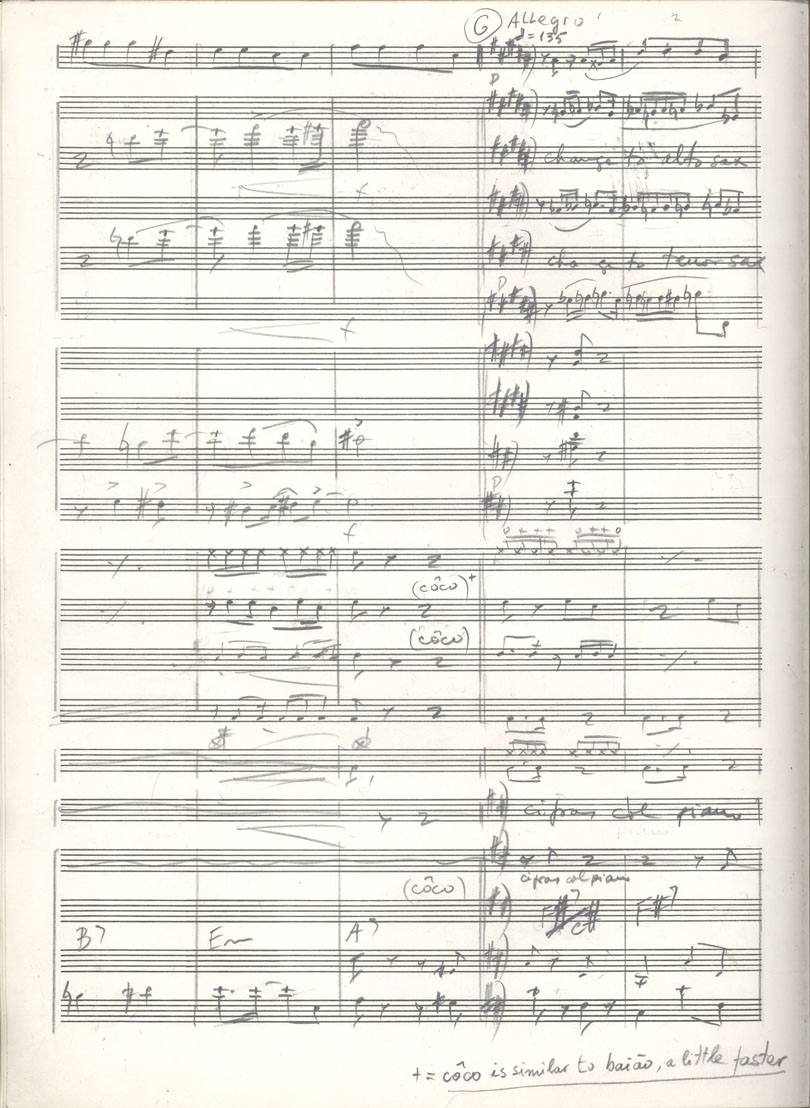 G Allegro
♩=135
P
2 change to alto sax
f
2 change to tenor sax
P
f
P
f
(côco)+
(côco)
cifras col piano
cifras col piano
(côco)
F#7/C# F#7
B7 Em A7
+ = côco is similar to baião, a little faster